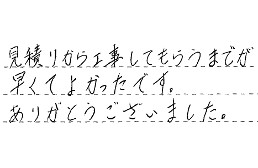 見積りから工事してもらうまでが
早くてよかったです。
ありがとうございました。